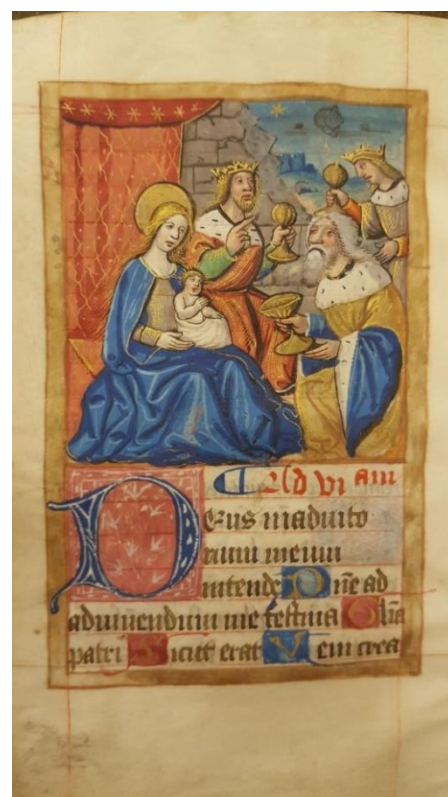 Ad vi am
Deus in adiuto
rium meum
intende Dn̄e ad
adiuuendum me festina Gl̄ia
patri Sicut erat Veni crea